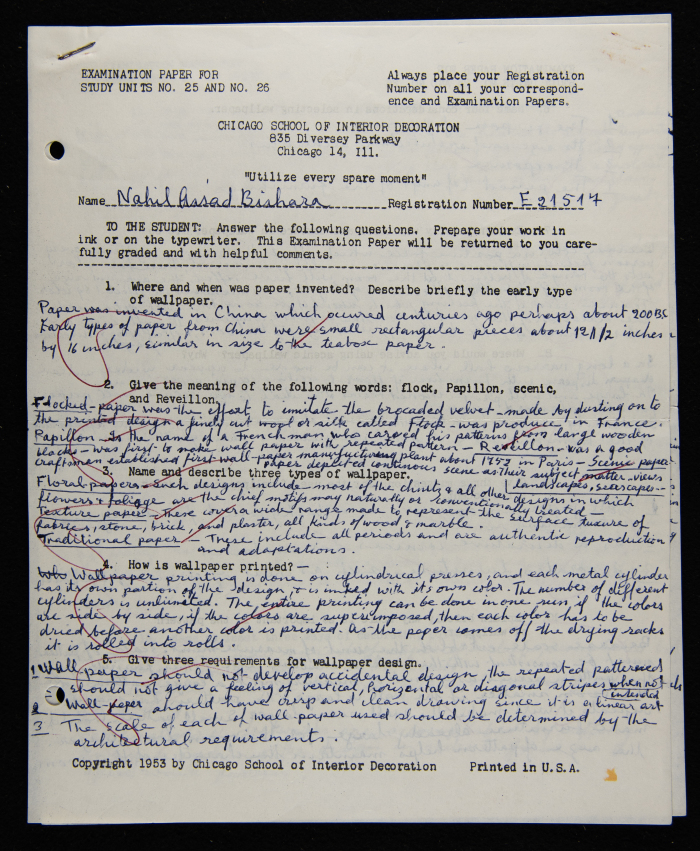 EXAMINATION PAPER FOR
STUDY UNITS NO. 25 AND NO. 26
Always place your Registration
Number on all your correspond-
ence and Examination Papers.
CHICAGO SCHOOL OF INTERIOR DECORATION
835 Diversey Parkway
Chicago 14, Ill.
"Utilize every spare moment"
Name Nahil Assad Bishara Registration Number E 21517
TO THE STUDENT: Answer the following questions. Prepare your work in
ink or on the typewriter. This Examination Paper will be returned to you care-
fully graded and with helpful comments.
1. Where and when was paper invented? Describe briefly the early type
of wallpaper.
Paper was invented in China which occured centuries ago perhaps about 200 BC
Early types of paper from China were small rectangular pieces about 12 1/2 inches
by 16 inches, similar in size to the teabox paper.
2. Give the meaning of the following words: flock, Papillon, scenic,
and Reveillon.
Flocked-paper was the effort to imitate the brocaded velvet-made by dusting on to
the printed design a finely cut wool or silk called Flock-was produce in France.
Papillon-Is the name of a Frenchman who carved his patterns from large wooden
blocks-was first to make wall paper with repeated pattern-Reveillon-was a good
craftsman established first wall-paper manufacturing plant about 1752 in Paris-Scenic paper
paper depicted continous scene as their subject matter-views
landscapes, seascapes--
3. Name and describe three types of wallpaper.
Floral papers-such designs include most of the chintz & all other designs in which
flowers & foliage are the chief motifs may naturally or conventionally treated-
Texture paper-These cover a wide range made to represent the surface tuxure of
fabrics, stone, brick, and plaster, all kinds of wood & marble.
Traditional paper-These include all periods and are authentic reproduction
and adaptations.
4. How is wallpaper printed?-
Wallpaper printing is done on cylindrical presses, and each metal cylinder
has its own portion of the design, & is inked with its own color. The number of different
cylinders is unlimited. The entire printing can be done in one run, if the colors
are side by side, if the colors are superimposed, then each color has to be
dried before another color is printed. As the paper comes off the drying racks
it is rolled into rolls.
5. Give three requirements for wallpaper design.
1 Wall paper should not develop accidental design, the repeated patterned
should not give a feeling of vertical, horizontal or diagonal stripes when not
intended
2 Wall-paper should have crisp and clean drawing since it is a linear art
3 The scale of each of wall-paper used should be determined by the
architectural requirements.
Copyright 1953 by Chicago School of Interior Decoration Printed in U.S.A.